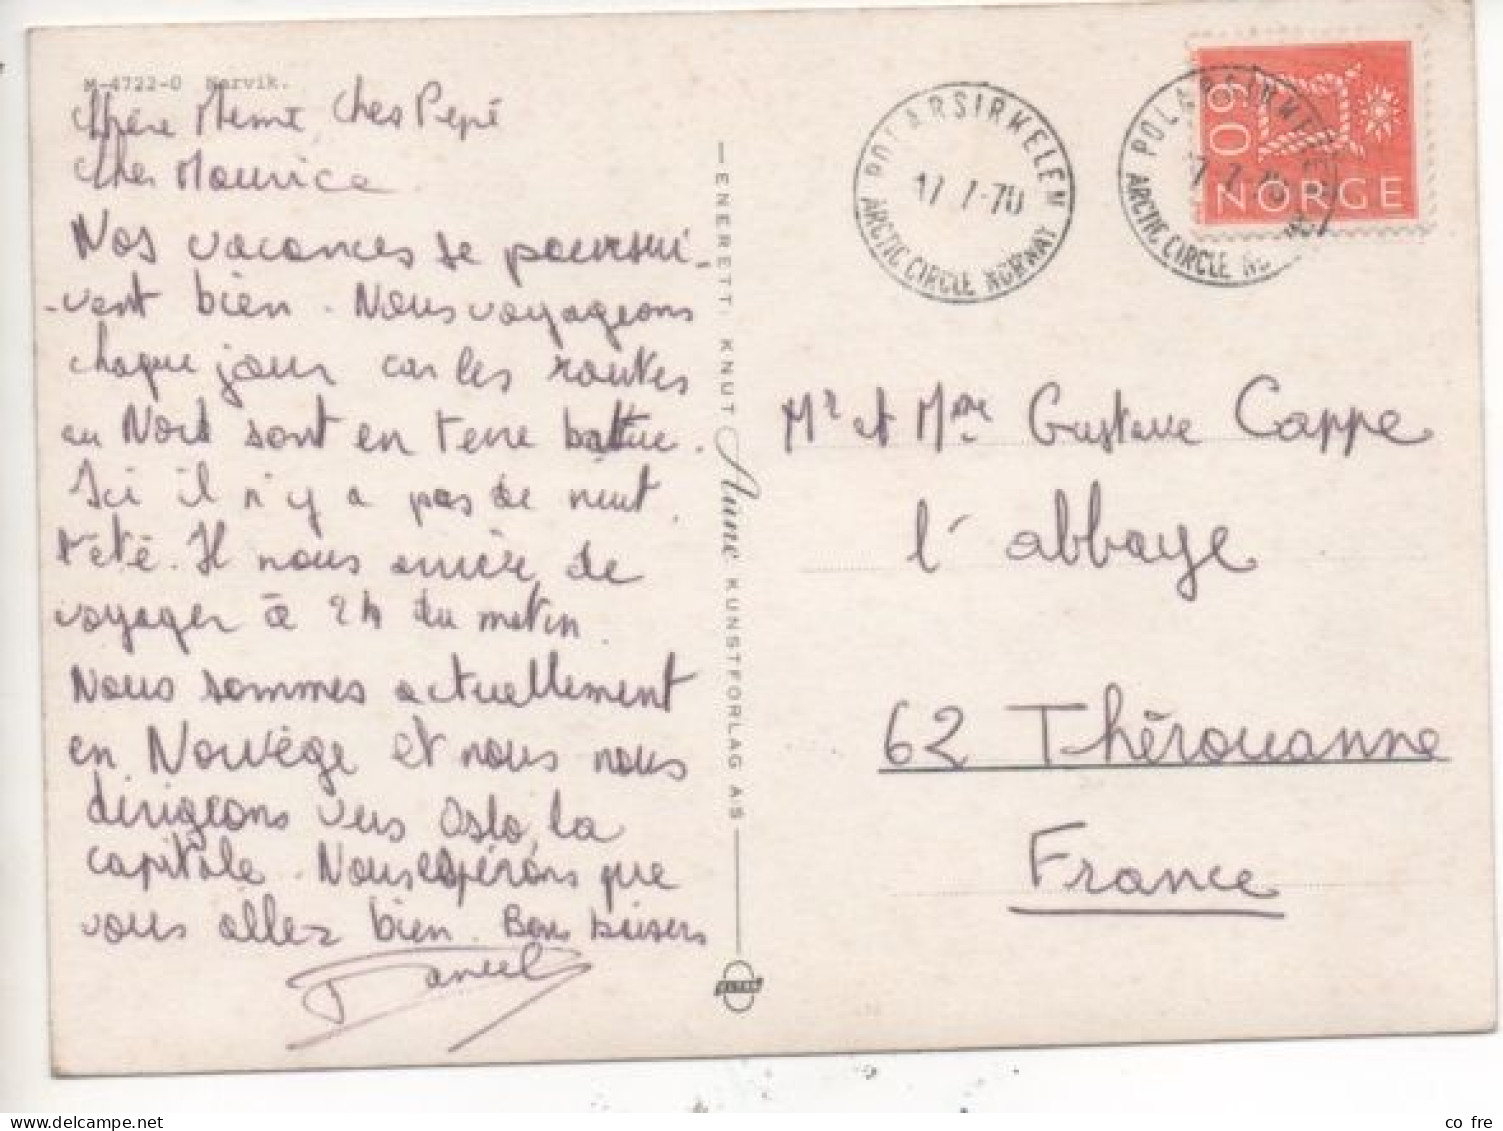 M-4722-0 Narvik.
Chère Mémé, Cher Pépé
Cher Maurice
Nos vacances se poursui-
-vent bien. Nous voyageons
chaque jour car les routes
au Nord sont en terre battue.
Ici il n'y a pas de nuit
l'été. Il nous arrive de
voyager à 2h du matin.
Nous sommes actuellement
en Norvège et nous nous
dirigeons vers Oslo, la
capitale. Nous espérons que
vous allez bien. Bons baisers
Daniel
ENERETT: KNUT Aune KUNSTFORLAG A/S
POLARSIRKELEN
17-7-70
ARCTIC CIRCLE NORWAY
POLARSIRKELEN
17-7-70
ARCTIC CIRCLE NORWAY
60
NORGE
Mr et Mme Gustave Cappe
l'abbaye
62 Thérouanne
France
co fre